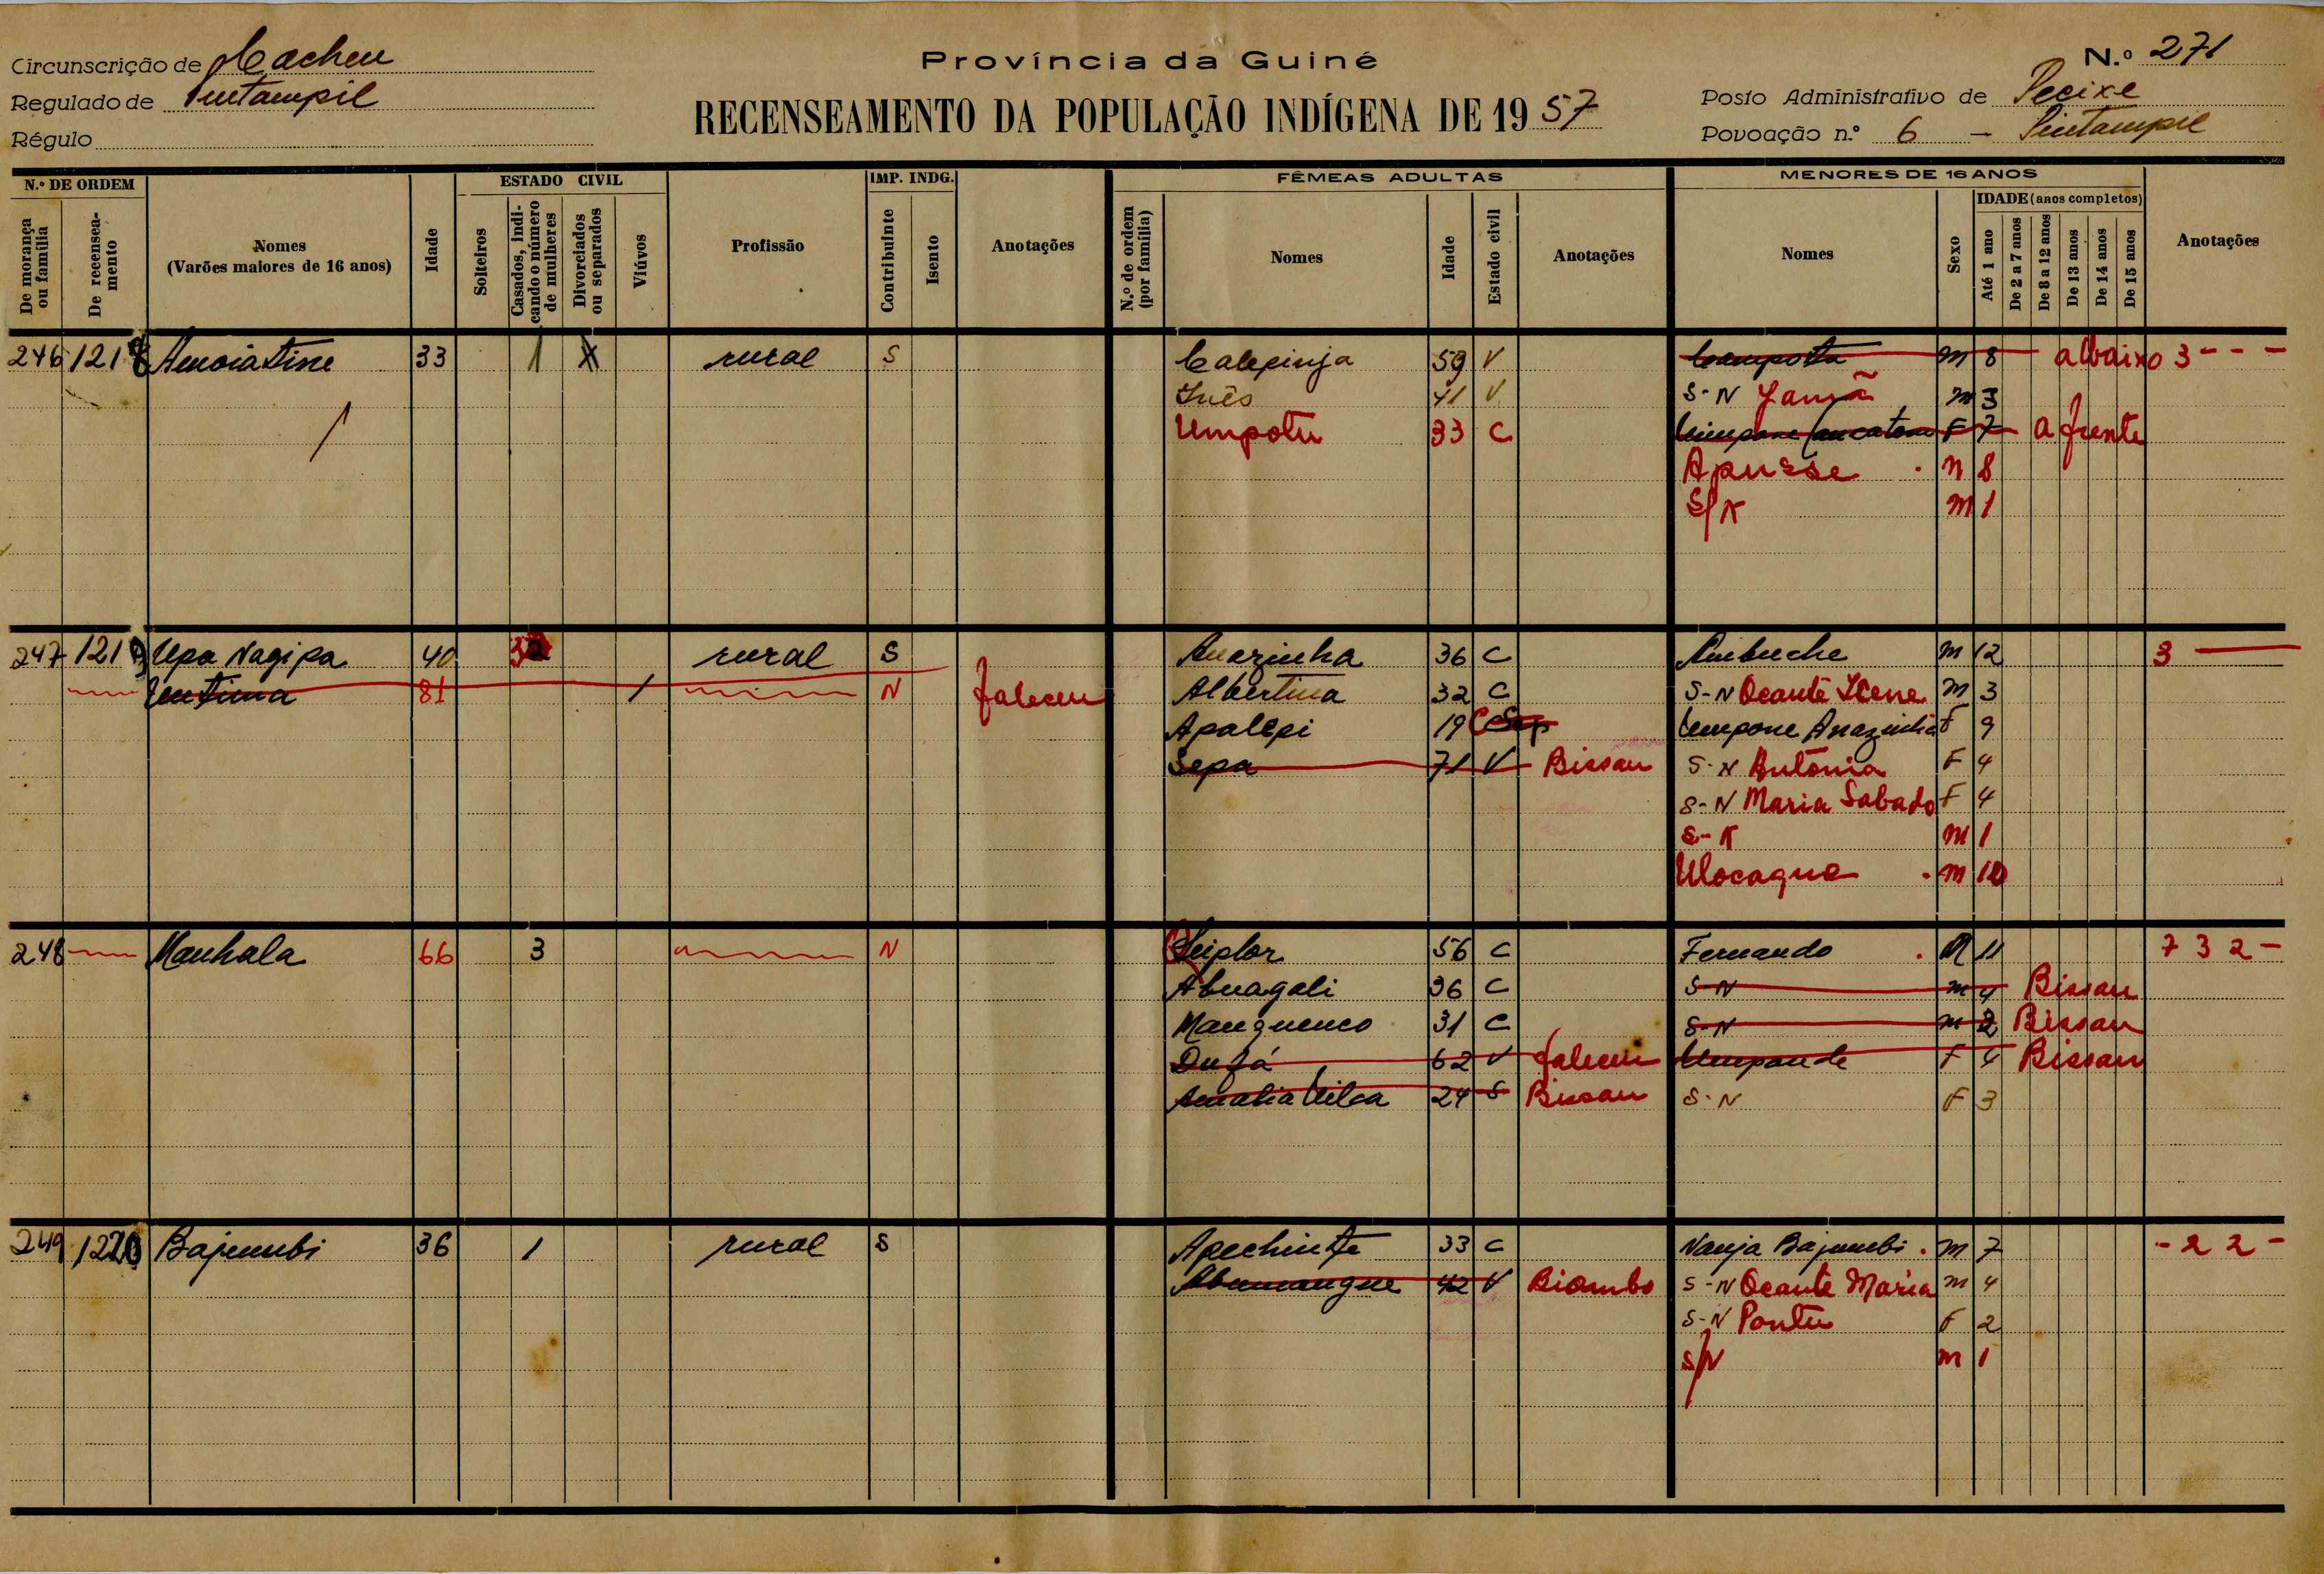 Província da Guiné
N.º 271
Circunscrição de Cacheu
Regulado de Pintampil
Régulo
RECENSEAMENTO DA POPULAÇÃO INDÍGENA DE 1957
Posto Administrativo de Pecixe
Povoação n.º 6 – Pintampil
N.º DE ORDEM
De morança ou família
De recenseamento
Nomes
(Varões maiores de 16 anos)
Idade
ESTADO CIVIL
Solteiros
Casados, indicando o número de mulheres
Divorciados ou separados
Viúvos
Profissão
IMP. INDG.
Contribuinte
Isento
Anotações
FÊMEAS ADULTAS
N.º de ordem (por família)
Nomes
Idade
Estado civil
Anotações
MENORES DE 16 ANOS
Nomes
Sexo
IDADE (anos completos)
Até 1 ano
De 2 a 7 anos
De 8 a 12 anos
De 13 anos
De 14 anos
De 15 anos
Anotações
246 1218 33 1 X rural S Calepinja 59 V Campota M 8 abaixo 3 - - -
Inês 41 V S-N M 3
Umpotu 33 C F 7 a frente
Apusse . M 8
S/N M 1
247 1219 Upa Nagipa 40 3 rural S Anazinha 36 C Ambuche M 12 3
81 1 N faleceu Albertina 32 C S-N Ocante M 3
Apalepi 19 C Sep Umpone Anazinha F 9
Sepa 71 V Bissau S-N Antónia F 4
S-N Maria Sabado F 4
S-N M 1
Ulocague . M 10
248 Manhala 66 3 N 56 C Fernando . M 11 7 3 2 -
Abuagali 36 C S-N M 4 Bissau
Manguenco 31 C S-N M 2 Bissau
62 V faleceu Umpande F 4 Bissau
24 S Bissau S-N F 3
249 1220 Bajumbi 36 1 rural S 33 C Nanja Bajumbi . M 7 - 2 2 -
Abumangue 42 V Biombo S-N Ocante Maria M 4
S-N Pontu F 2
S/N M 1